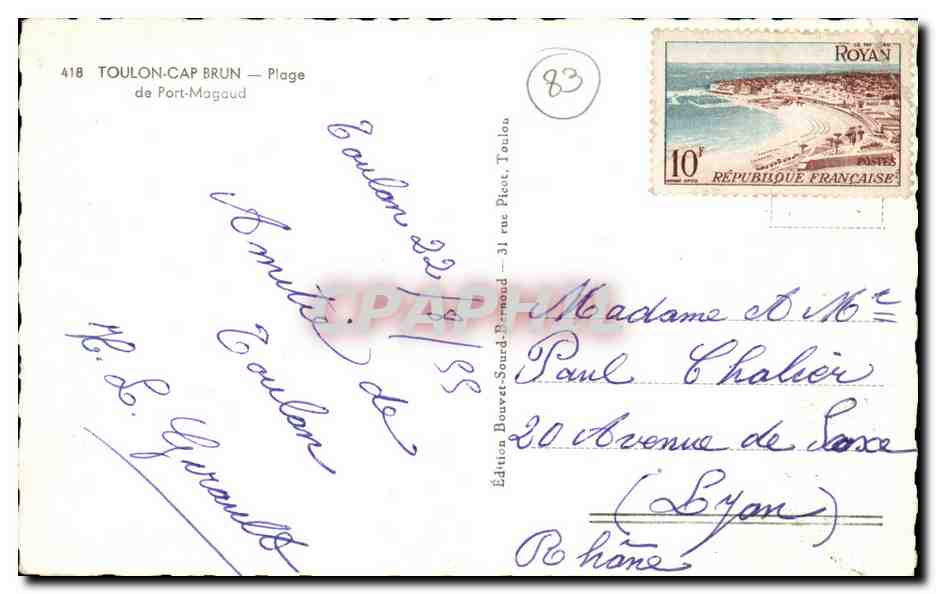 418 TOULON-CAP BRUN — Plage
de Port-Magaud
83
ROYAN
10F
POSTES
RÉPUBLIQUE FRANÇAISE
Toulon 22/8/55
Amitiés de
Toulon
H. L. Girault
Édition Bouvet-Sourd-Bernond — 31 rue Picot, Toulon
CPAPHIL
Madame A Mr
Paul Chalier
20 Avenue de Saxe
(Lyon)
Rhône